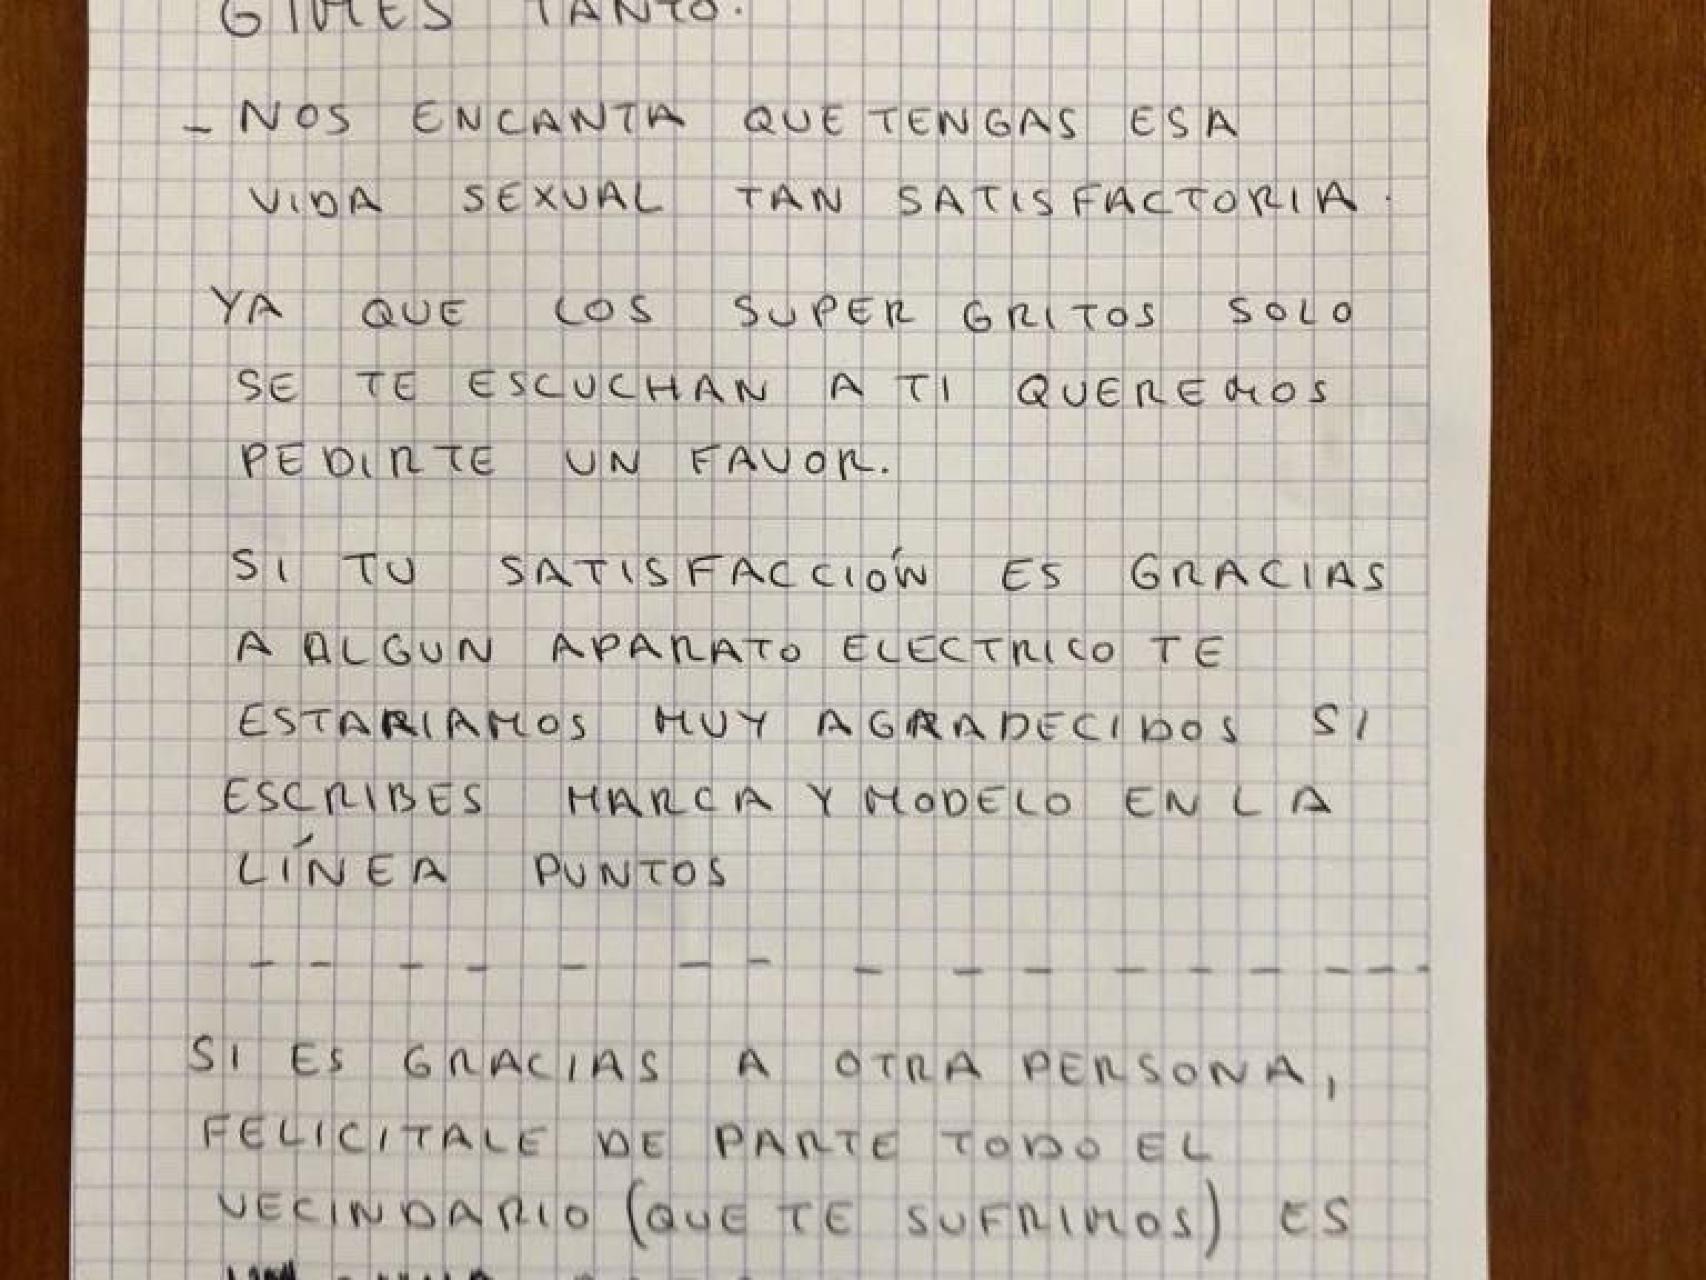 GIMES TANTO.
- NOS ENCANTA QUE TENGAS ESA
VIDA SEXUAL TAN SATISFACTORIA.
YA QUE LOS SUPER GRITOS SOLO
SE TE ESCUCHAN A TI QUEREMOS
PEDIRTE UN FAVOR.
SI TU SATISFACCIÓN ES GRACIAS
A ALGUN APARATO ELECTRICO TE
ESTARIAMOS MUY AGRADECIDOS SI
ESCRIBES MARCA Y MODELO EN LA
LÍNEA PUNTOS
SI ES GRACIAS A OTRA PERSONA,
FELICITALE DE PARTE TODO EL
VECINDARIO (QUE TE SUFRIMOS) ES